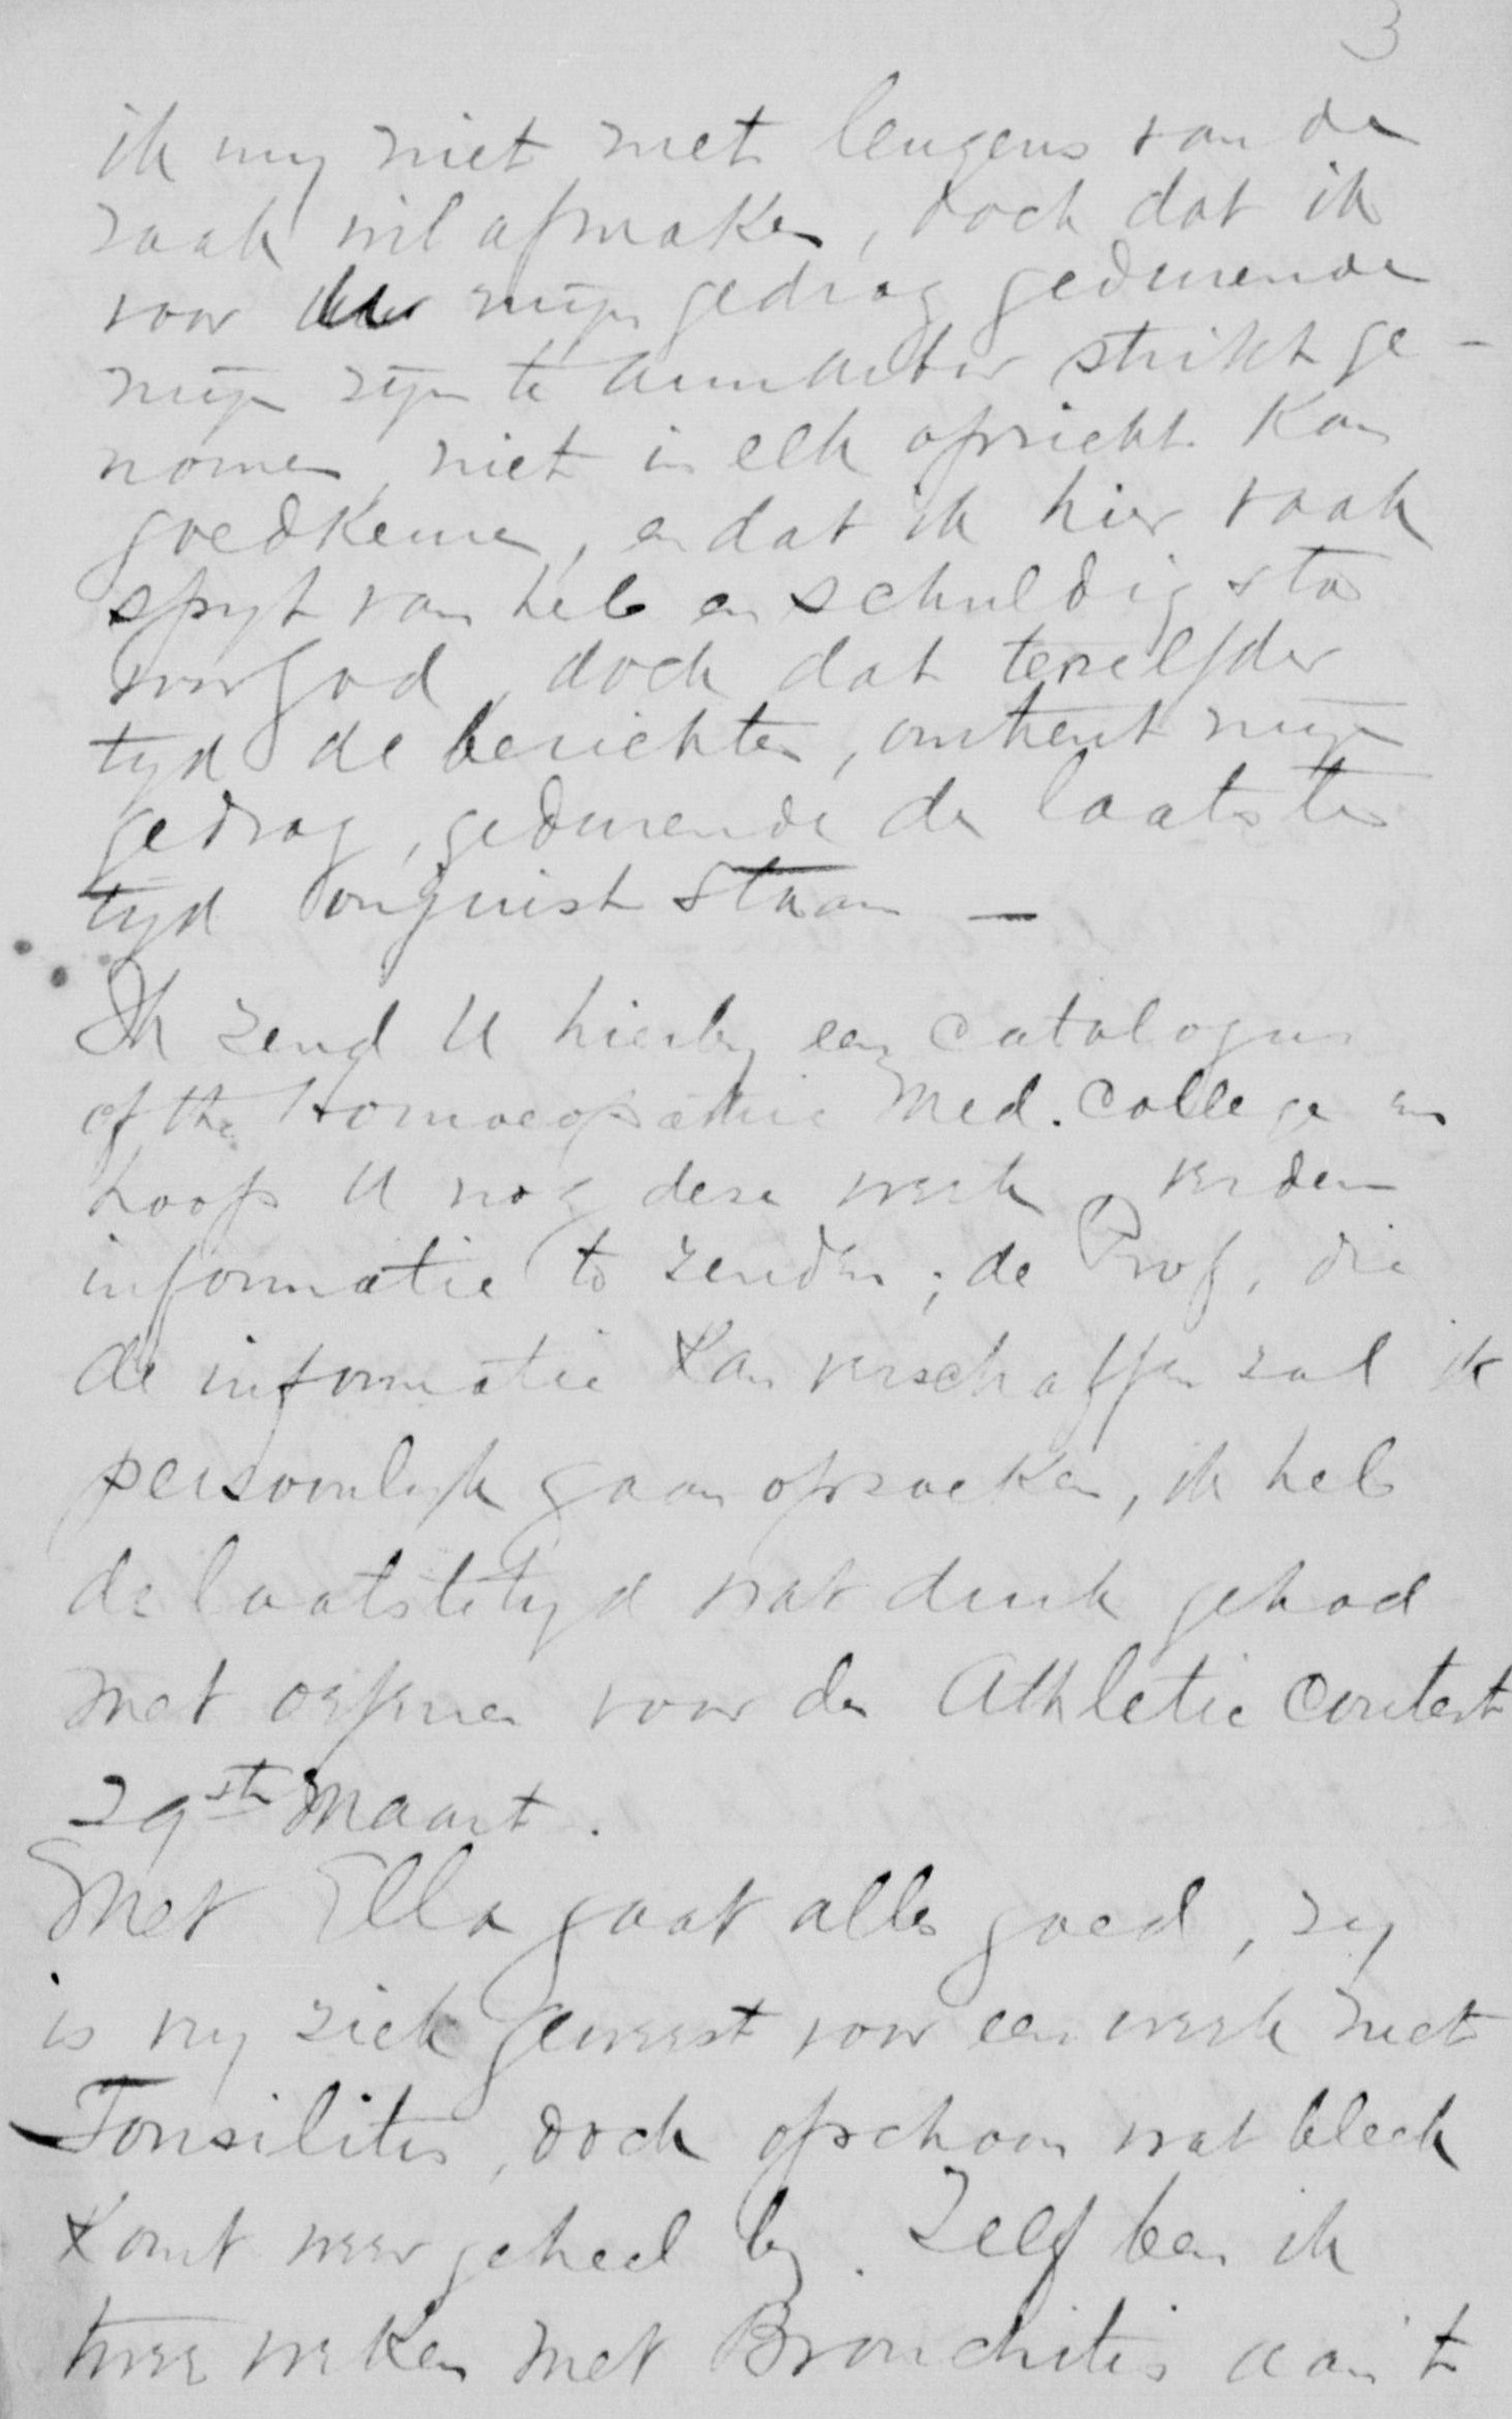 3
ik my niet met leugens van de
zaak wil afmaken, doch dat ik
voor mijn gedrag gedurende
mijn zijn te Ann Arbor strikt ge-
nomen, niet in elk opzicht kan
goedkeuren, en dat ik hier vaak
spyt van heb en schuldig sta
voor God, doch dat terzelfder
tyd de berichten, omtrent mijn
gedrag, gedurende de laatste
tijd onjuist staan —
Ik zend U hierby een catalogus
of the Homoeopathic Med. College en
hoop U nog deze week verdere
informatie to zenden; de Prof. die
de informatie kan verschaffen zal ik
persoonlyk gaan opzoeken, ik heb
de laatste tyd wat druk gehad
met oefenen voor de Athletic Contest
29ste Maart.
Met Ella gaat alles goed, zy
is vry ziek geweest voor een week met
Tonsilitis, doch opschoon wat bleek
komt weer geheel by. Zelf ben ik
twee weken met Bronchitis aan t